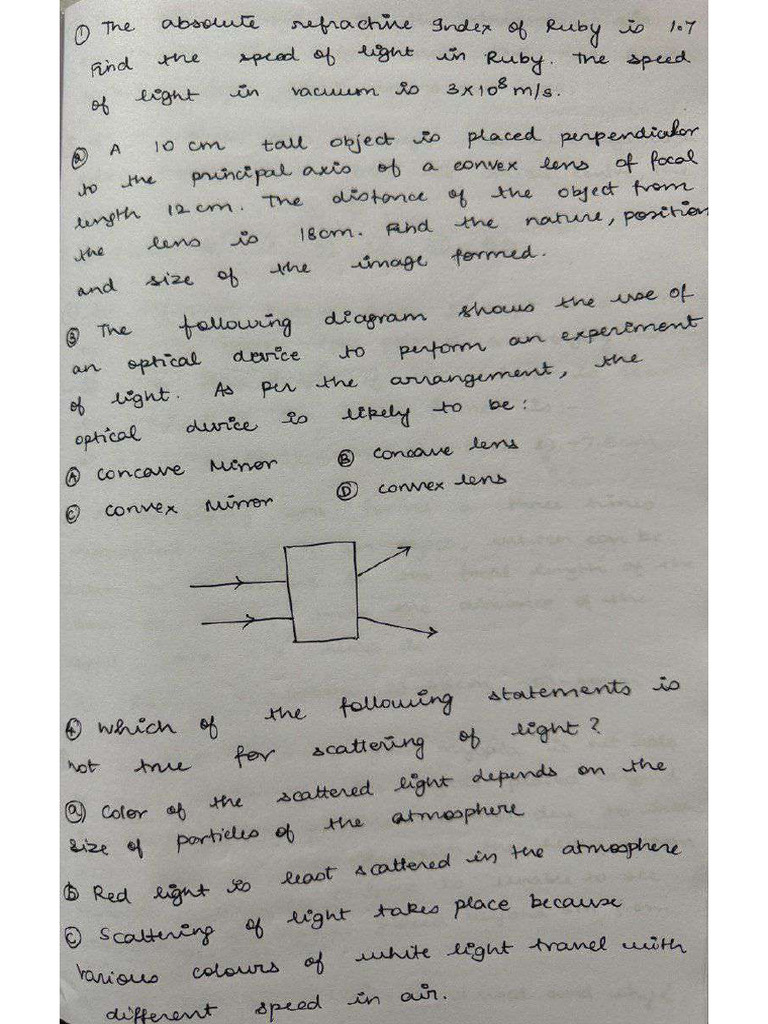 ① The absolute refractive Index of Ruby is 1.7
Find the speed of light in Ruby. The speed
of light in vacuum is 3×10⁸ m/s.
② A 10 cm tall object is placed perpendicular
to the principal axis of a convex lens of focal
length 12 cm. The distance of the object from
the lens is 18cm. Find the nature, position
and size of the image formed.
③ The following diagram shows the use of
an optical device to perform an experiment
of light. As per the arrangement, the
optical device is likely to be:
Ⓐ concave Mirror Ⓑ concave lens
Ⓒ convex Mirror Ⓓ convex lens
④ Which of the following statements is
not true for scattering of light?
ⓐ Color of the scattered light depends on the
size of particles of the atmosphere
ⓑ Red light is least scattered in the atmosphere
ⓒ Scattering of light takes place because
various colours of white light travel with
different speed in air.